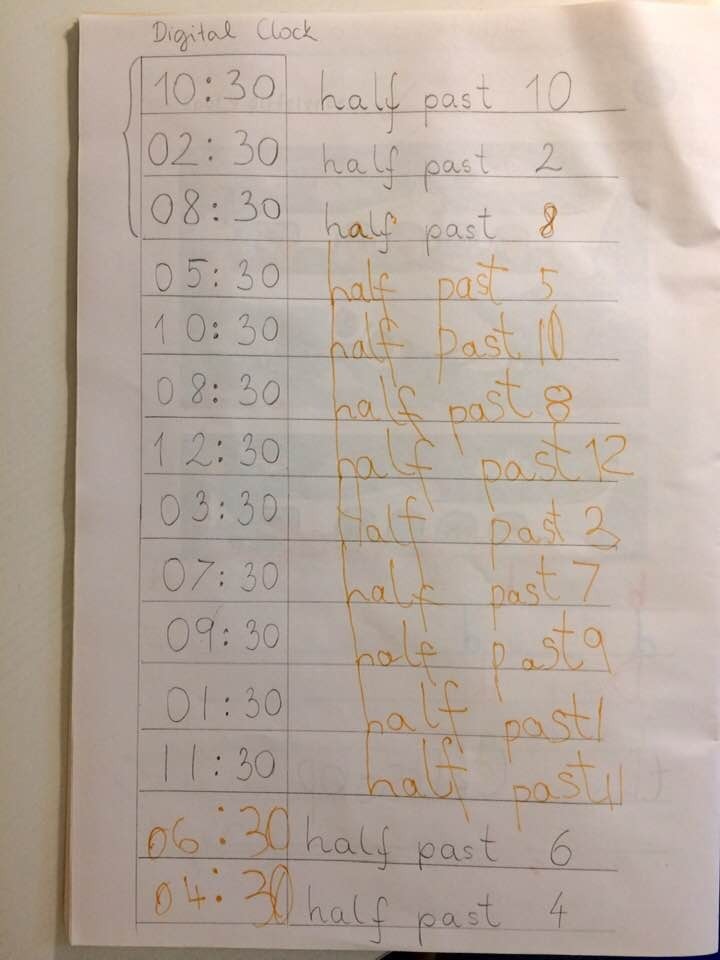 Digital Clock
10:30 half past 10
02:30 half past 2
08:30 half past 8
05:30 half past 5
10:30 half past 10
08:30 half past 8
12:30 half past 12
03:30 Half past 3
07:30 half past 7
09:30 half past 9
01:30 half past 1
11:30 half past 11
06:30 half past 6
04:30 half past 4